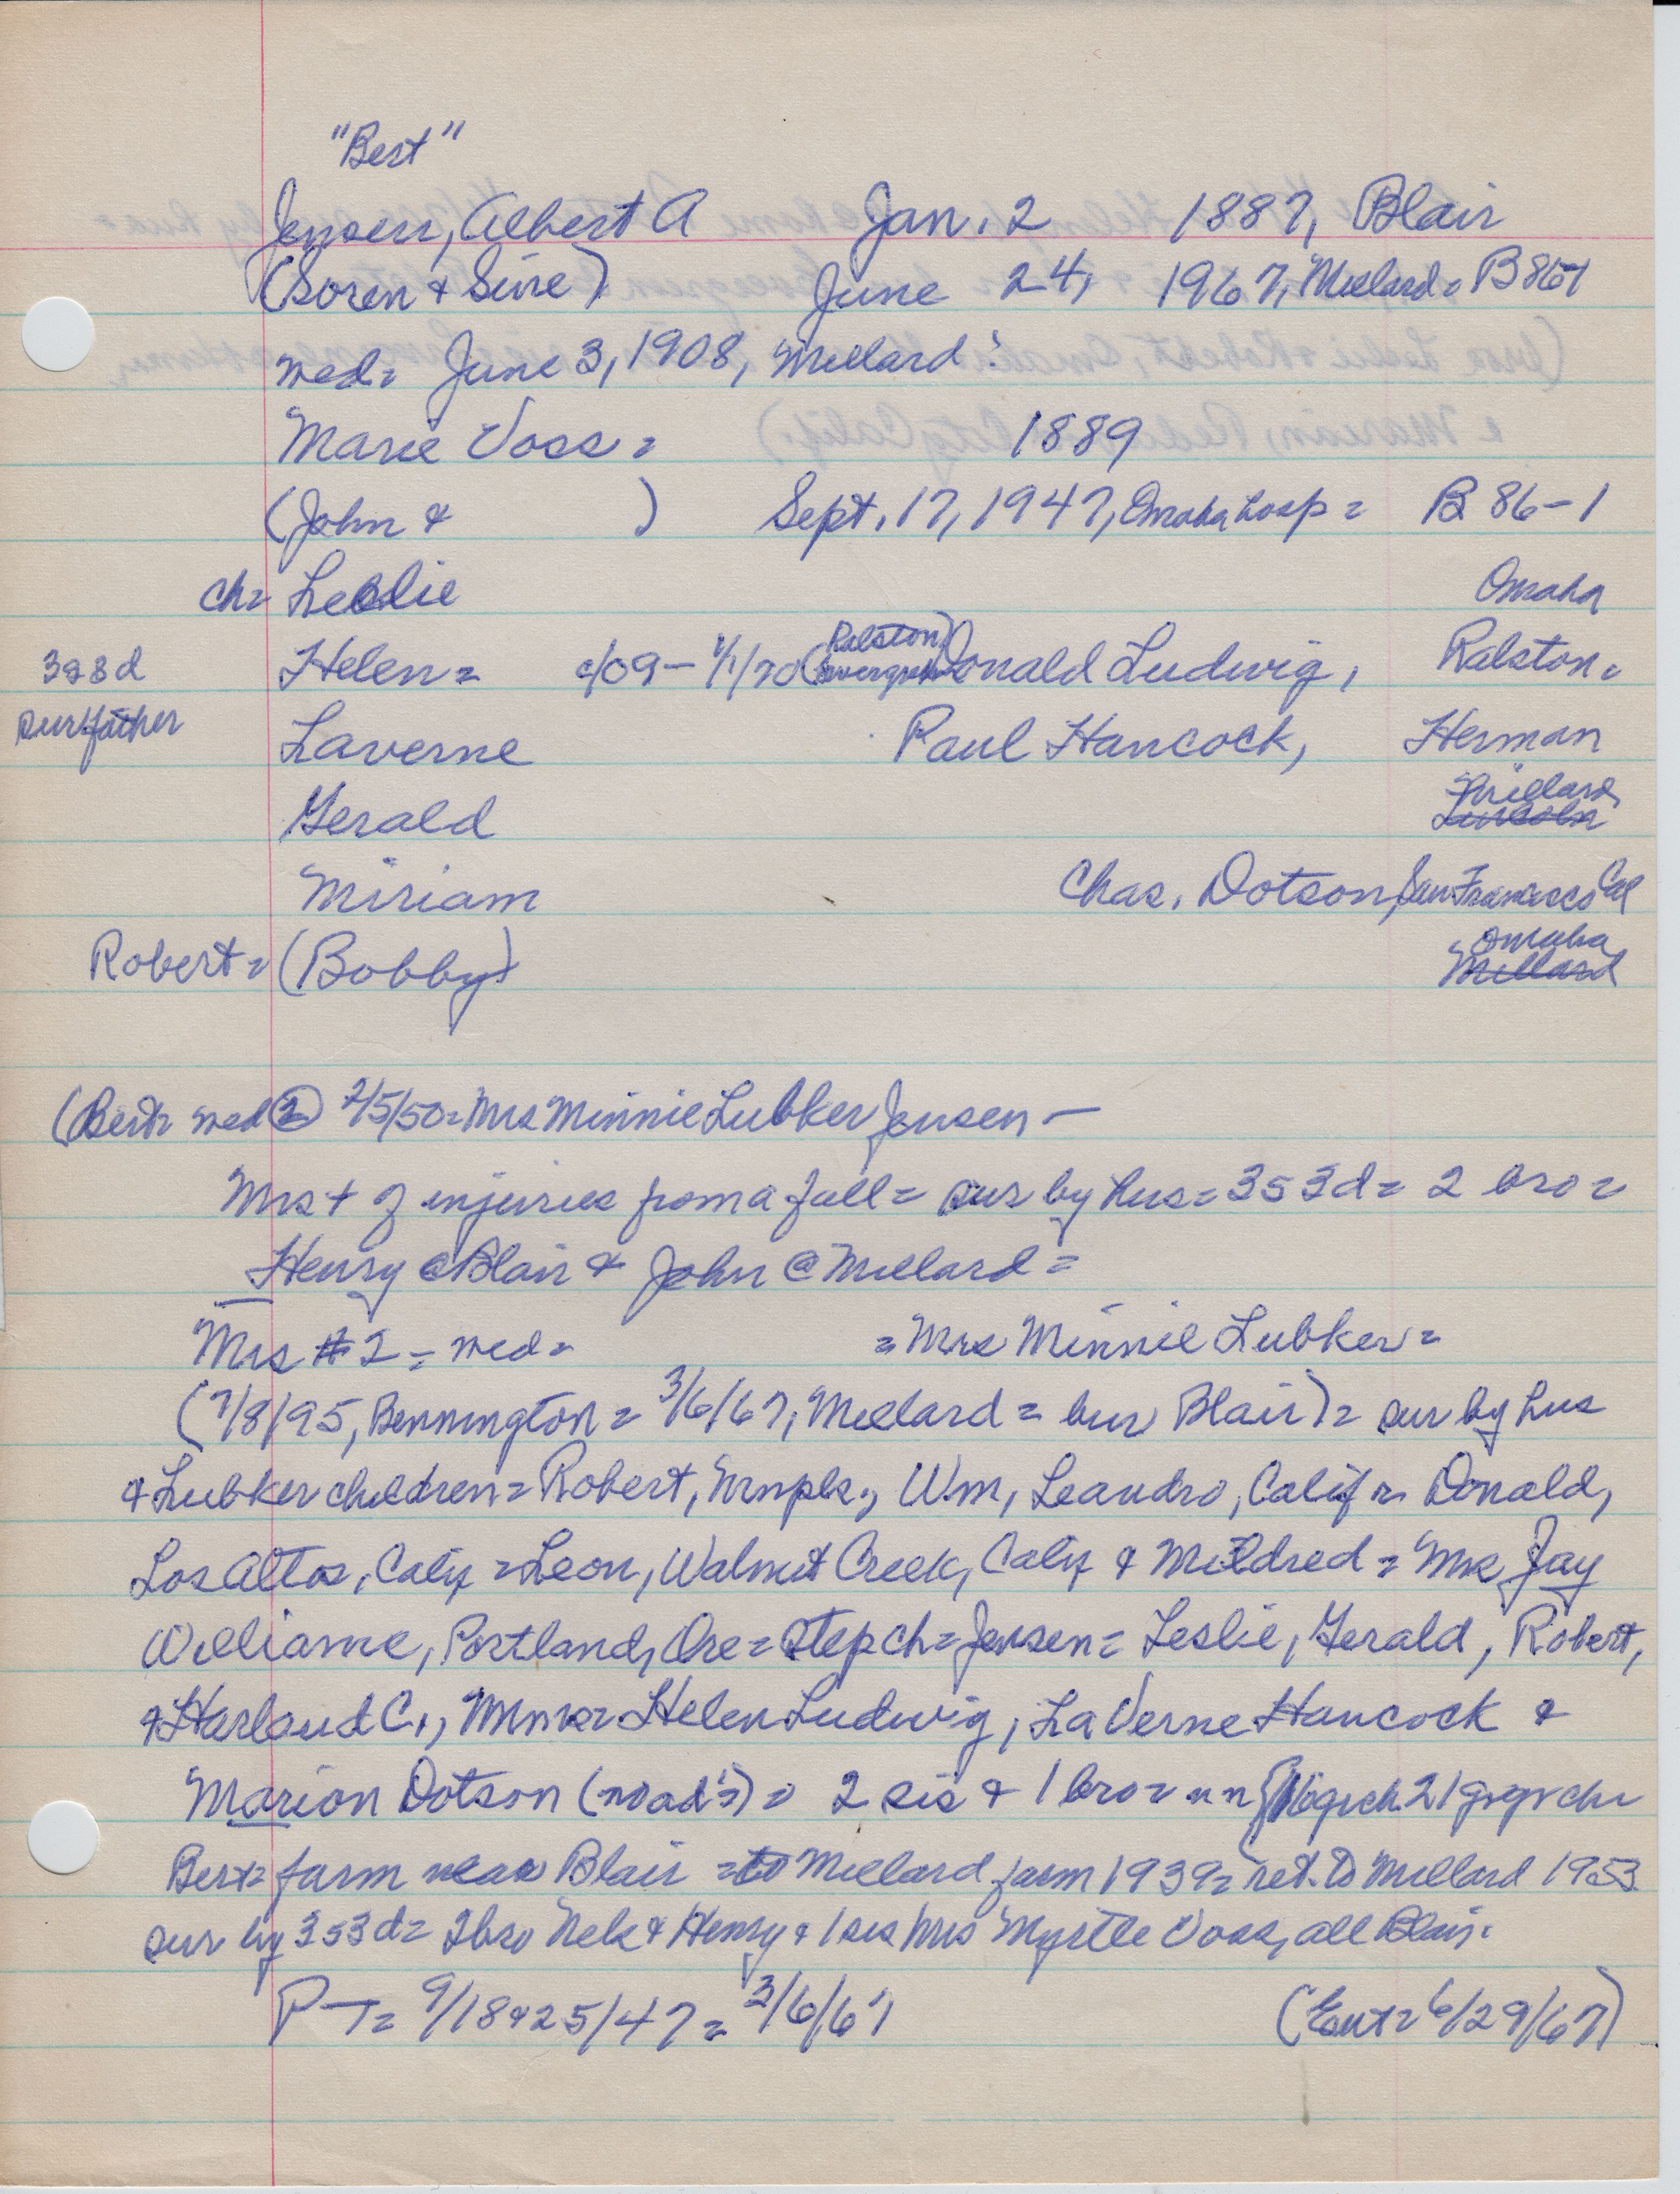 "Bert"
Jensen, Albert A Jan. 2 1887, Blair
(Soren & Sine) June 24, 1967, Millard = B 86-1
wed = June 3, 1908, Millard:
Marie Voss = 1889
(John & ) Sept. 17, 1947, Omaha hosp = B 86-1
ch = Leslie Omaha
3s3d Helen = /09 - 1/1/70 (Ralston Evergreen) Donald Ludwig, Ralston =
sur father Laverne Paul Hancock, Herman
Gerald Millard, Lincoln
Miriam Chas. Dotson, San Francisco Cal
Robert = (Bobby) Omaha Millard
(Bert = wed ② 2/5/50 = Mrs Minnie Lubker Jensen —
Mrs + of injuries from a fall = sur by hus = 3s3d = 2 bro =
Henry @ Blair & John @ Millard =
Mrs #2 = wed = = Mrs Minnie Lubker =
(7/8/95, Bennington = 3/6/67, Millard = bur Blair) = sur by hus
& Lubker children = Robert, Wm, Leandro, Calif = Donald,
Los Altos, Calif = Leon, Walnut Creek, Calif & Mildred = Mrs Jay
Williams, Portland, Ore = Step ch = Jensen = Leslie, Gerald, Robert,
& Harland C., Helen Ludwig, LaVerne Hancock &
Marion Dotson (no ad's) = 2 sis & 1 bro = 21
Bert = farm near Blair = to Millard farm 1939 = ret. to Millard 1953
sur by 3s3d = 2 bro Nels & Henry & 1 sis Mrs Myrtle Voss, all Blair.
P-T = 9/18&25/47 = 3/6/67 (Ent = 6/29/67)